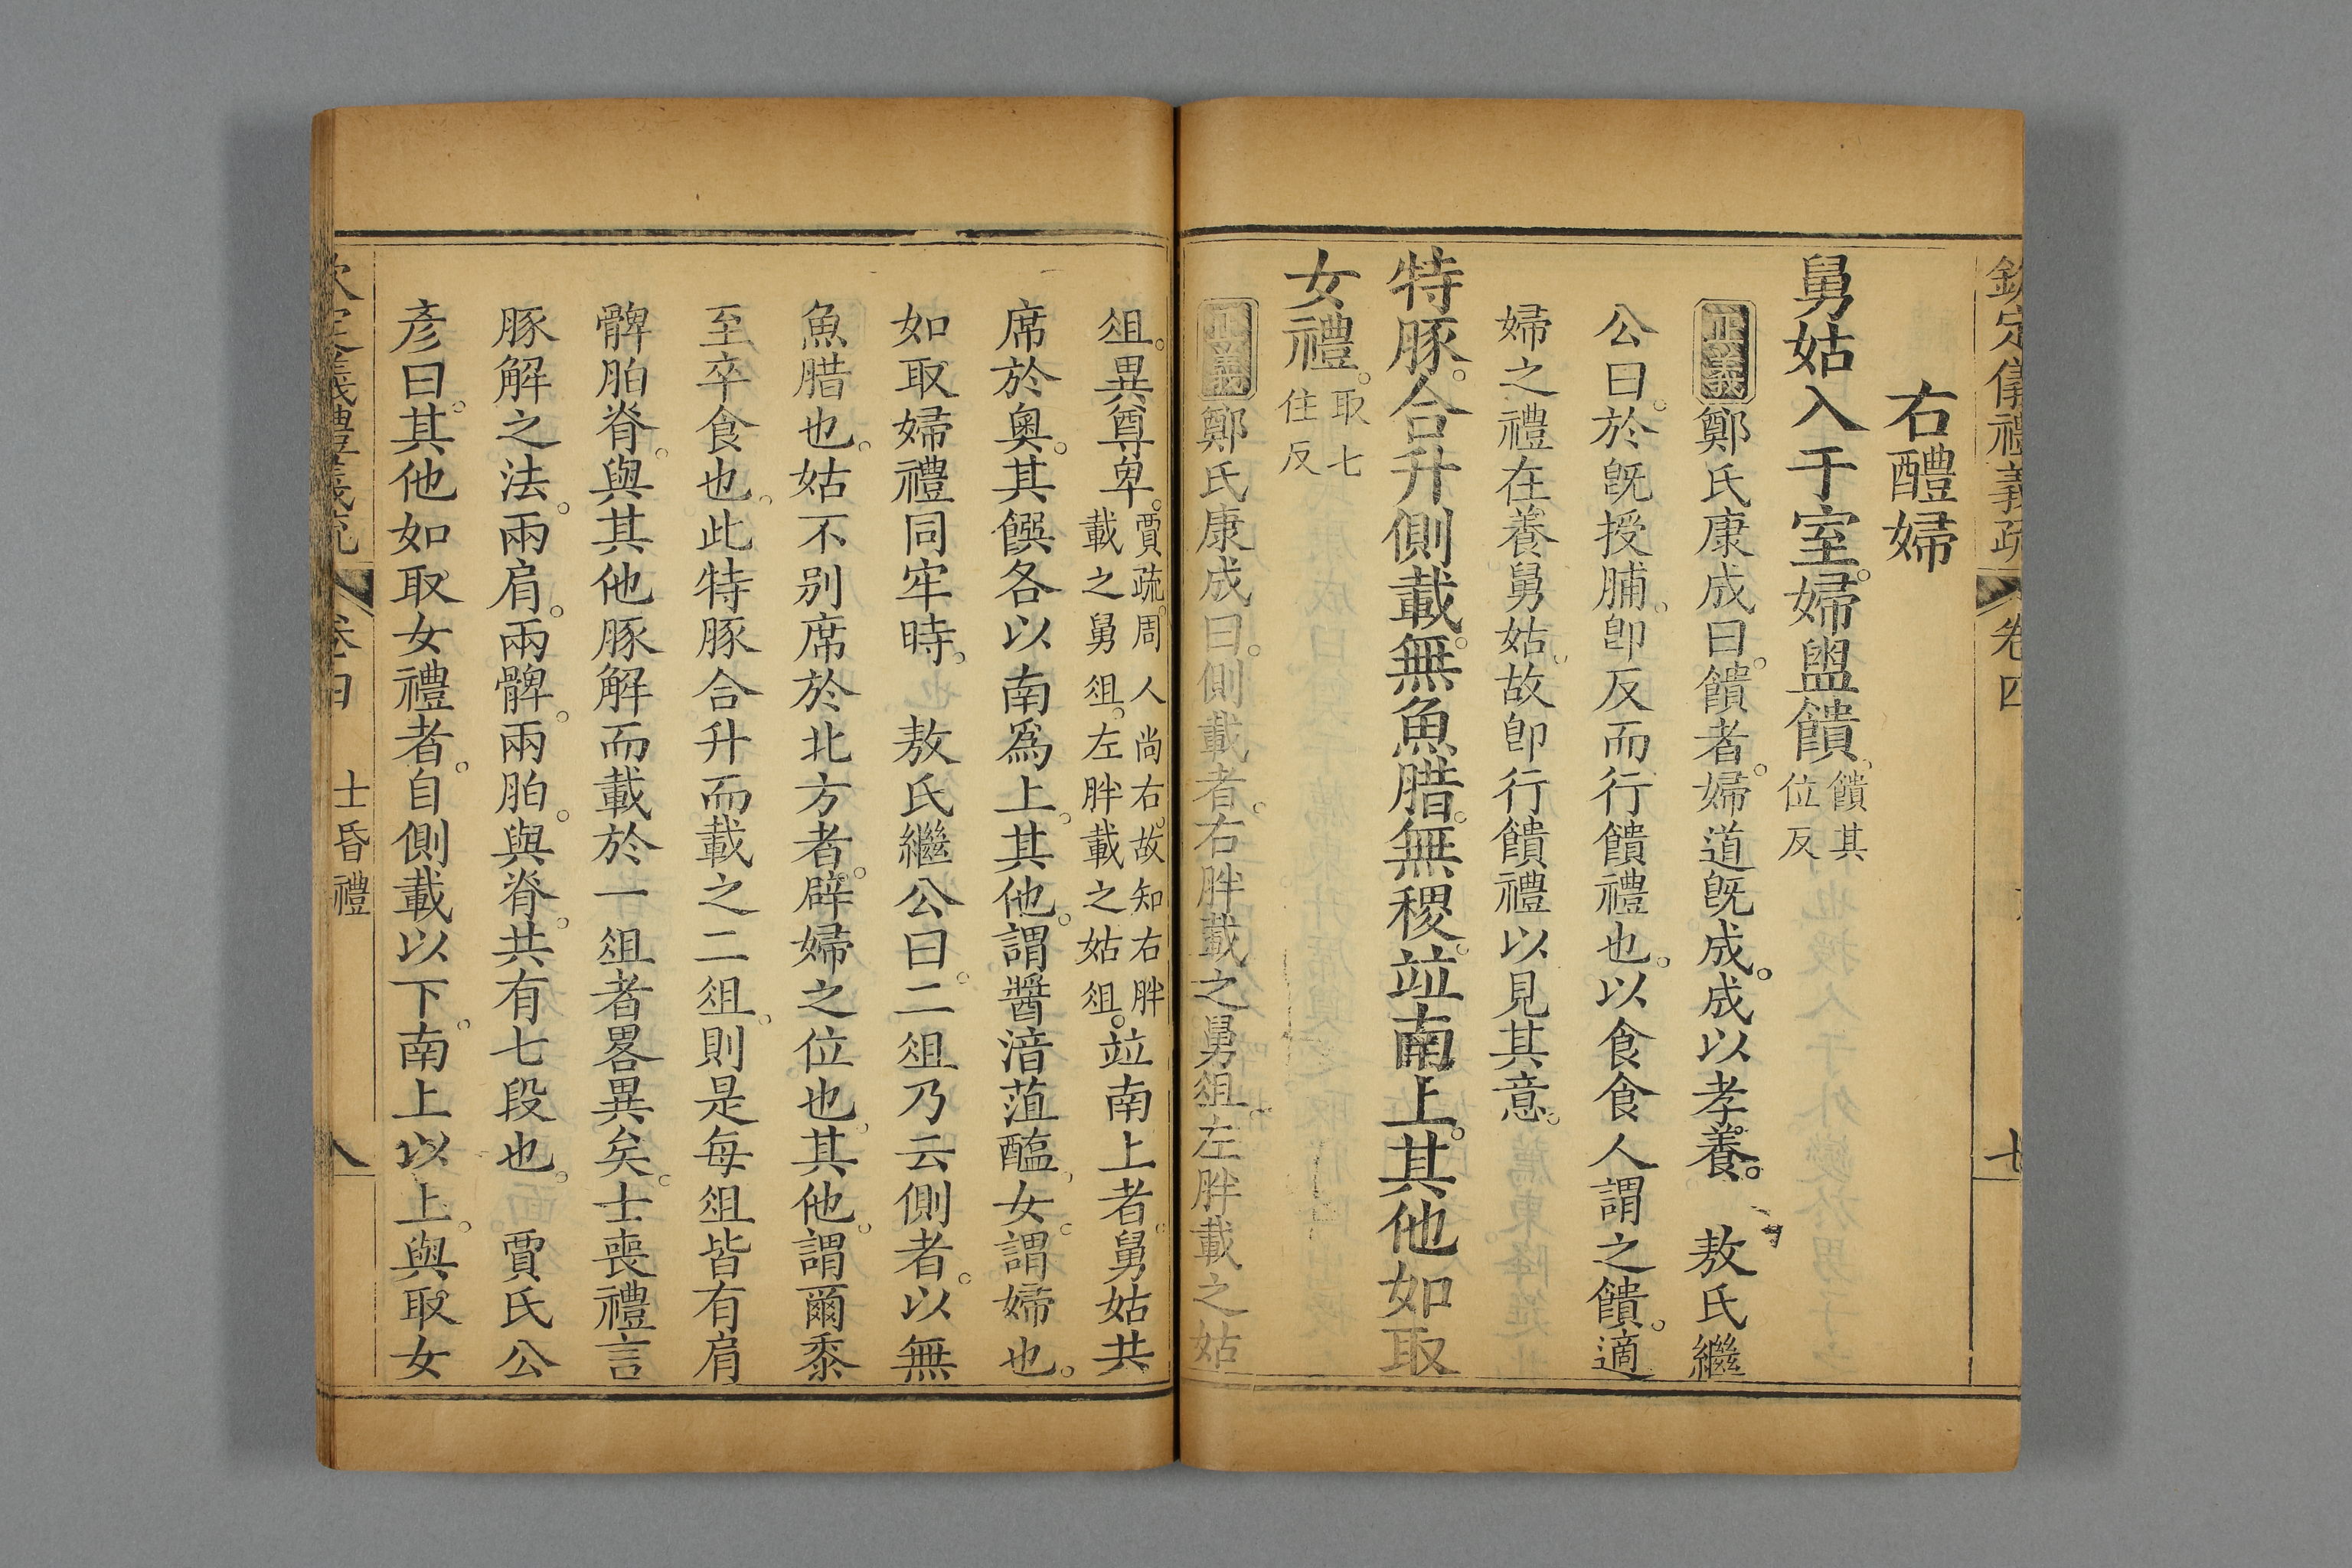 欽定儀禮義疏 卷四 七
右醴婦
舅姑入于室。婦盥饋。饋其位反
正義鄭氏康成曰。饋者。婦道既成。成以孝養。 敖氏繼
公曰。於既授脯。卽反而行饋禮也。以食食人謂之饋。適
婦之禮在養舅姑。故卽行饋禮以見其意。
特豚。合升側載。無魚腊。無稷。竝南上。其他如取
女禮。取七住反
正義鄭氏康成曰。側載者。右胖載之舅俎。左胖載之姑
俎。異尊卑。賈疏。周人尚右。故知右胖載之舅俎。左胖載之姑俎。竝南上者。舅姑共
席於奧。其饌各以南爲上。其他。謂醬湆菹醢。女。謂婦也。
如取婦禮同牢時。 敖氏繼公曰。二俎乃云側者。以無
魚腊也。姑不別席於北方者。辟婦之位也。其他。謂爾黍
至卒食也。此特豚合升而載之二俎。則是每俎皆有肩
髀胉脊。與其他豚解而載於一俎者畧異矣。士喪禮言
豚解之法。兩肩。兩髀。兩胉。與脊。共有七段也。 賈氏公
彥曰。其他如取女禮者。自側載以下。南上以上。與取女
欽定儀禮義疏 卷四 士昏禮 八